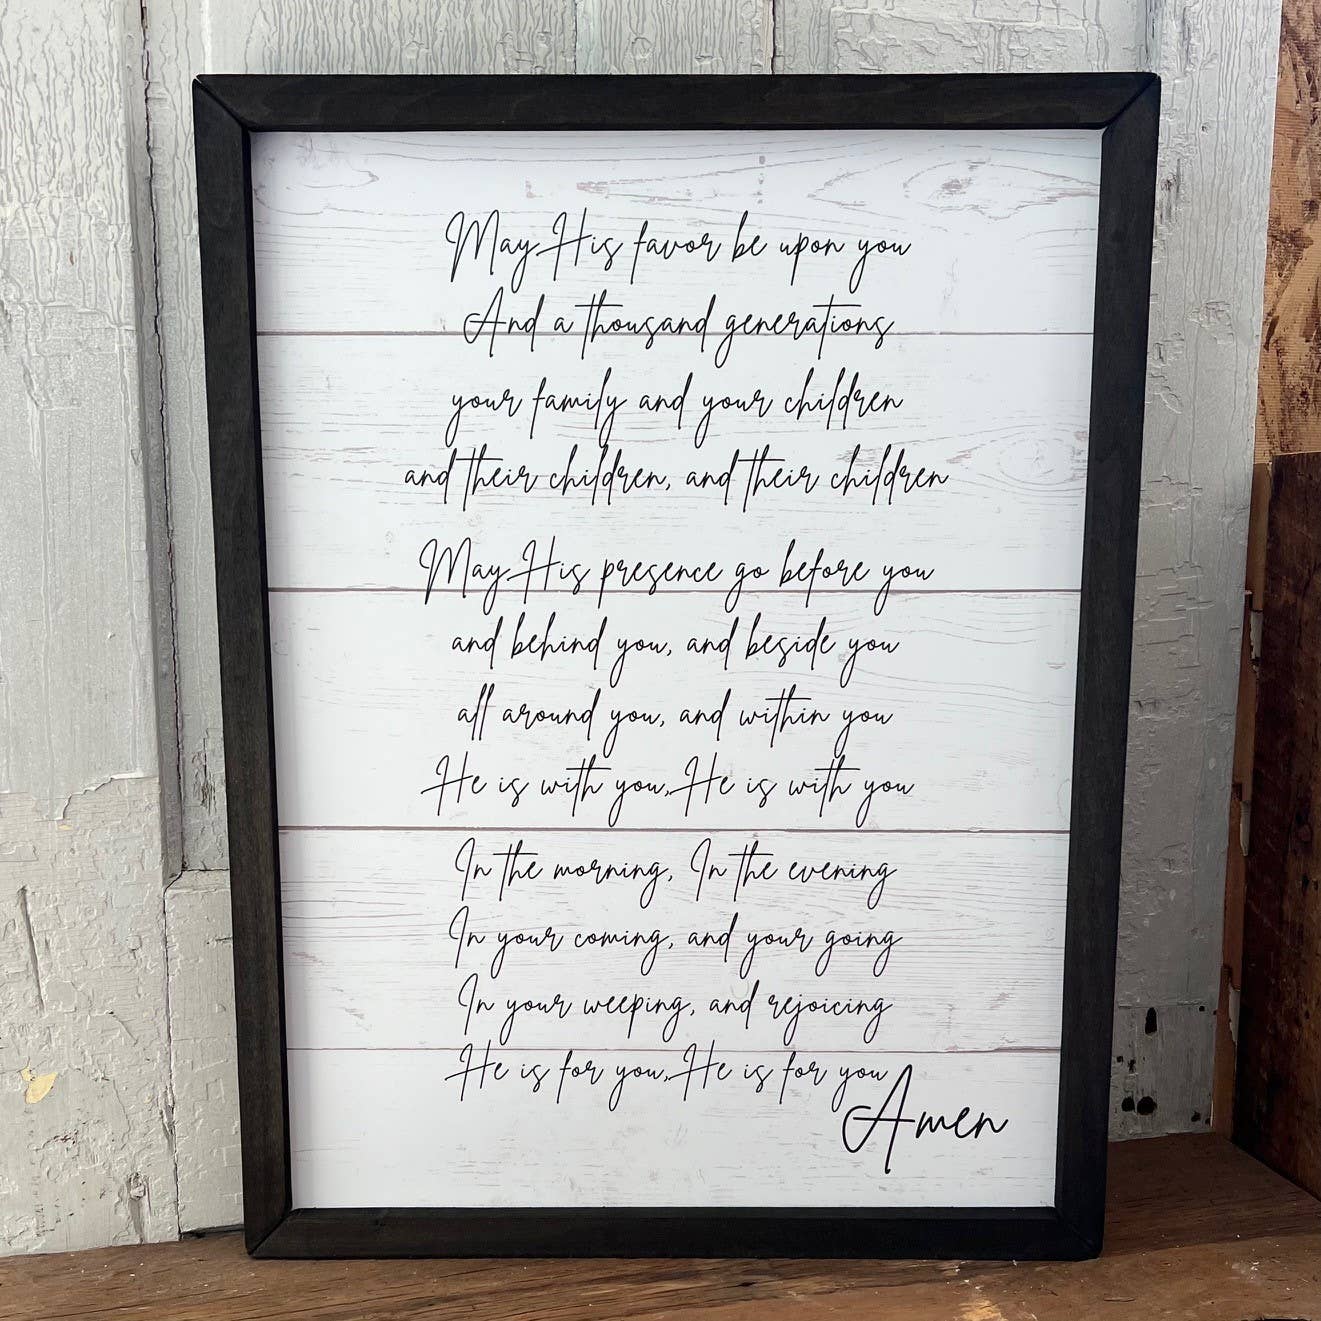 May His favor be upon you
And a thousand generations
your family and your children
and their children, and their children
May His presence go before you
and behind you, and beside you
all around you, and within you
He is with you, He is with you
In the morning, In the evening
In your coming, and your going
In your weeping, and rejoicing
He is for you, He is for you
Amen